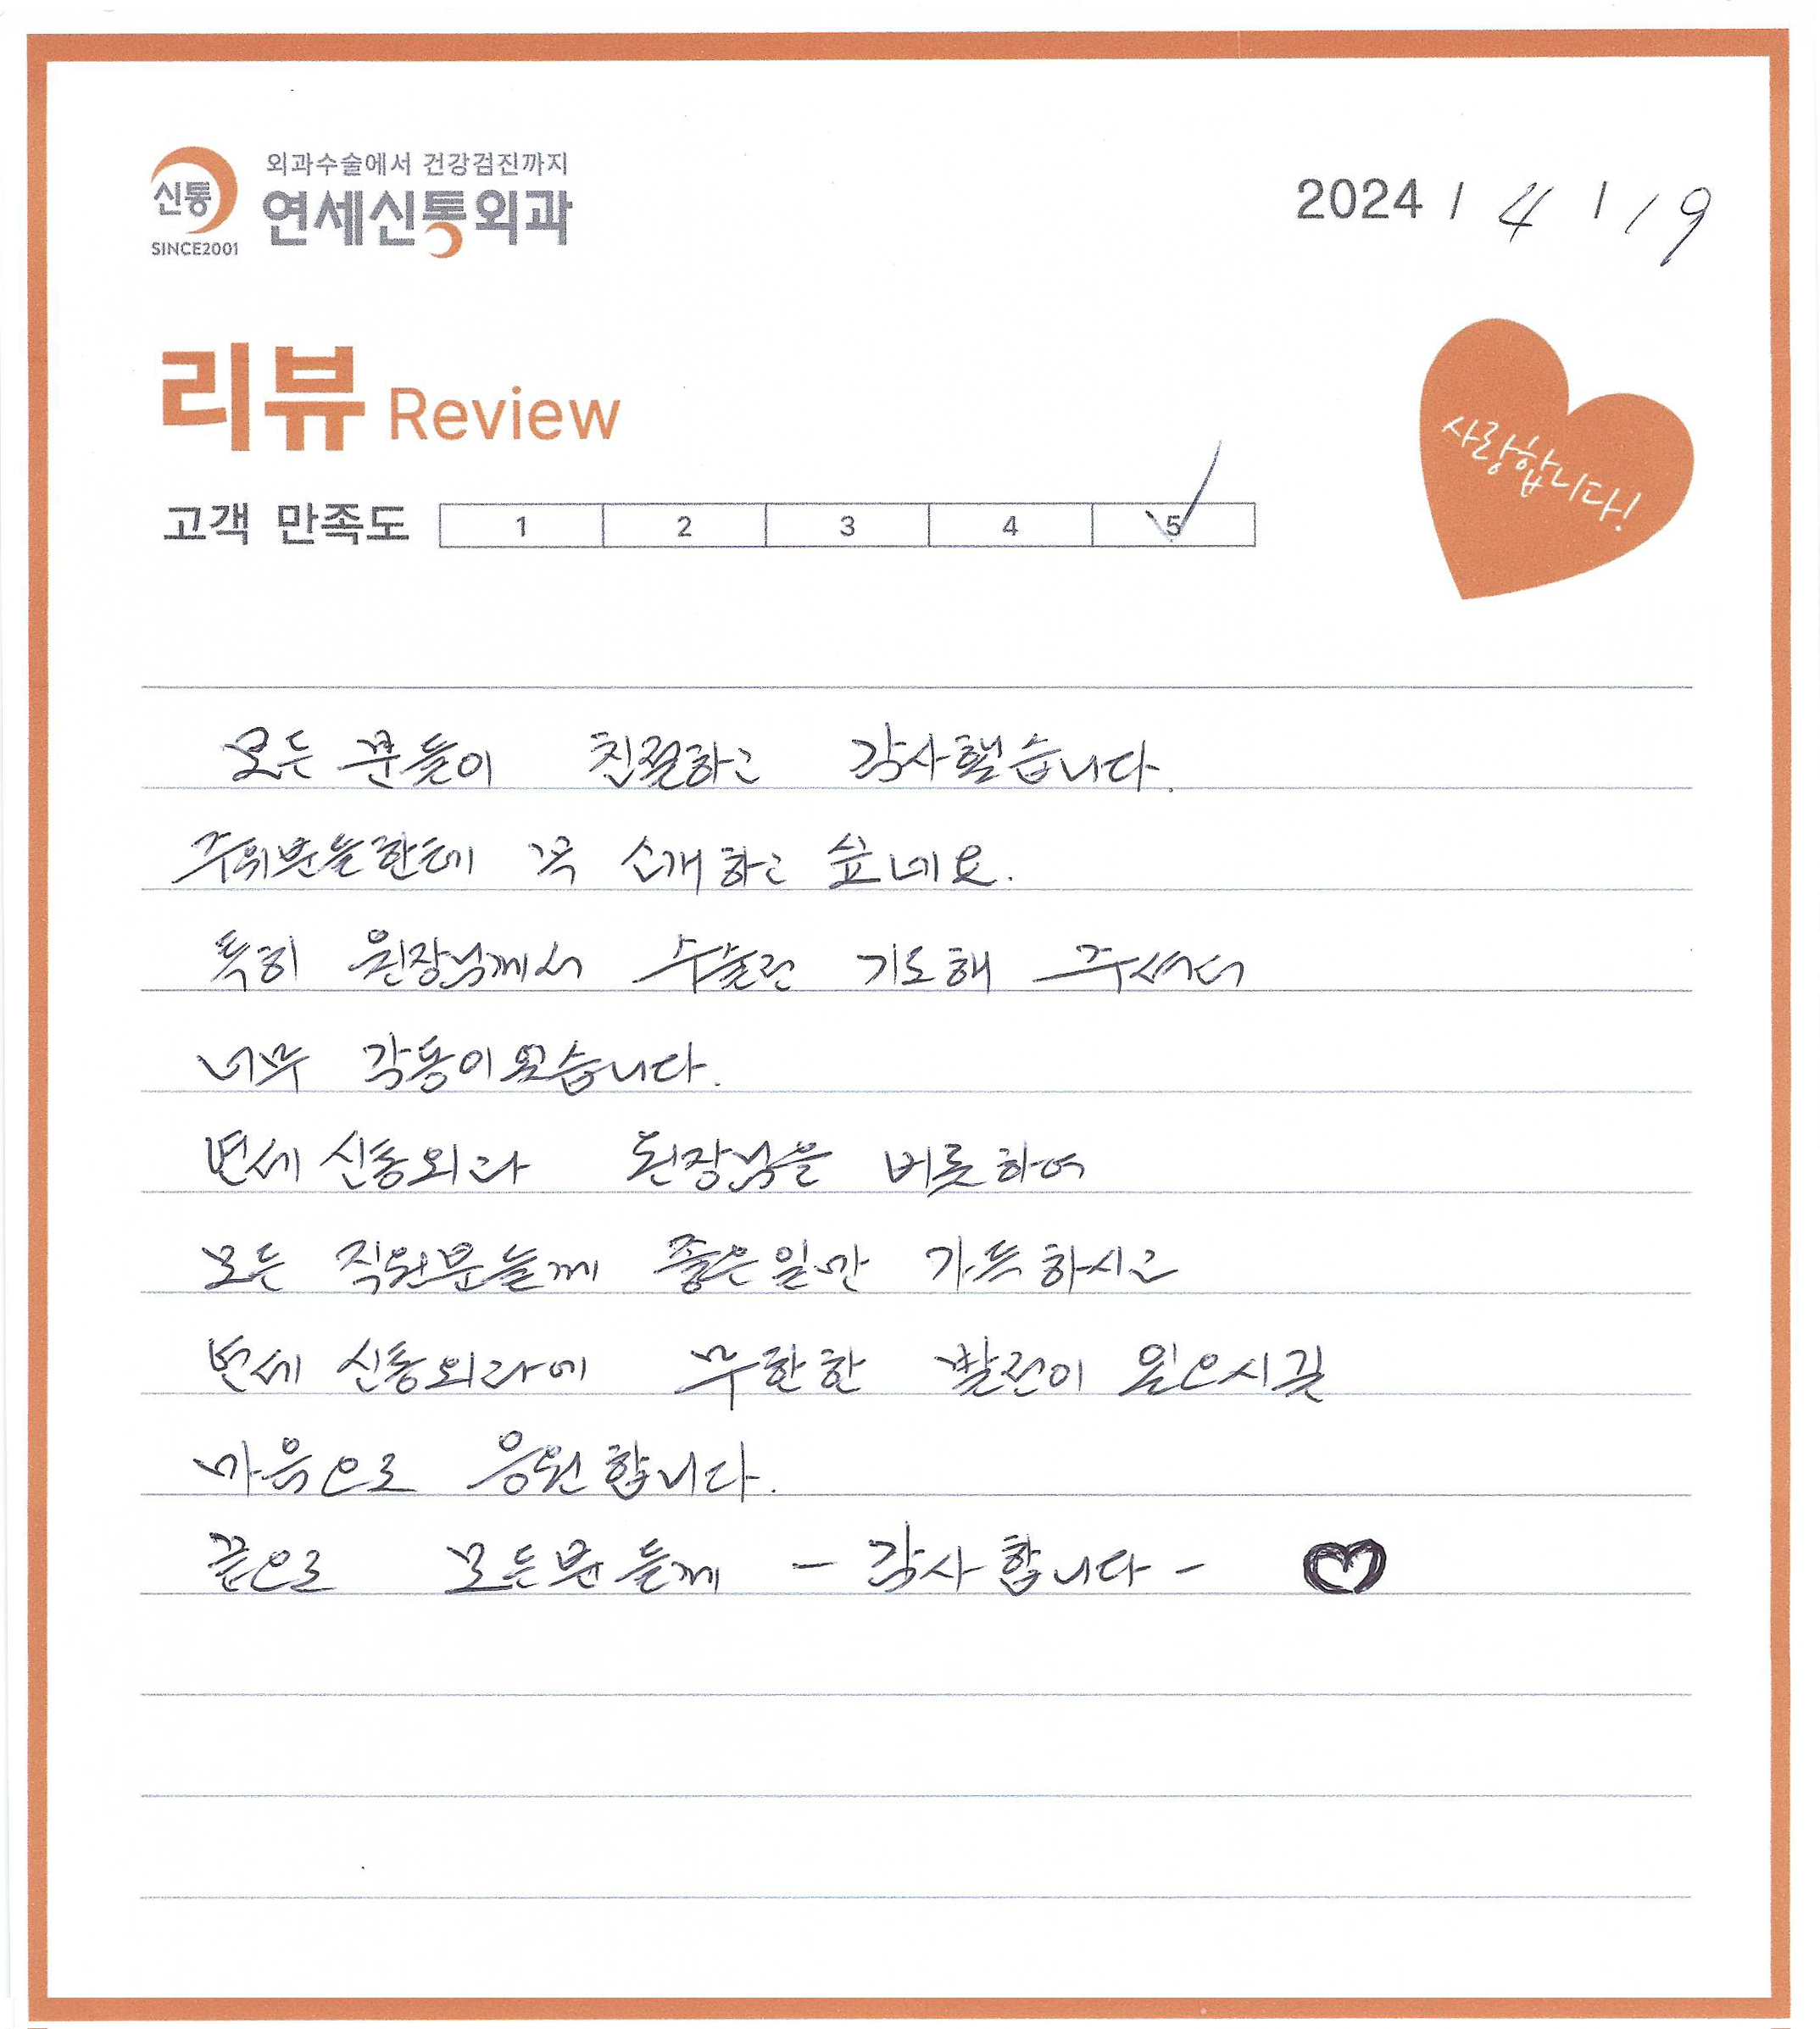 신통
SINCE2001
외과수술에서 건강검진까지
연세신통외과
2024 / 4 / 19
리뷰 Review
사랑합니다!
고객 만족도 1 2 3 4 5
모든 분들이 친절하고 감사했습니다.
주위분들한테 꼭 소개하고 싶네요.
특히 원장님께서 수술전 기도해 주셔서
너무 감동이였습니다.
연세 신통외과 원장님을 비롯하여
모든 직원분들께 좋은일만 가득하시고
연세 신통외과에 무한한 발전이 있으시길
마음으로 응원합니다.
끝으로 모든분들께 - 감사합니다 -